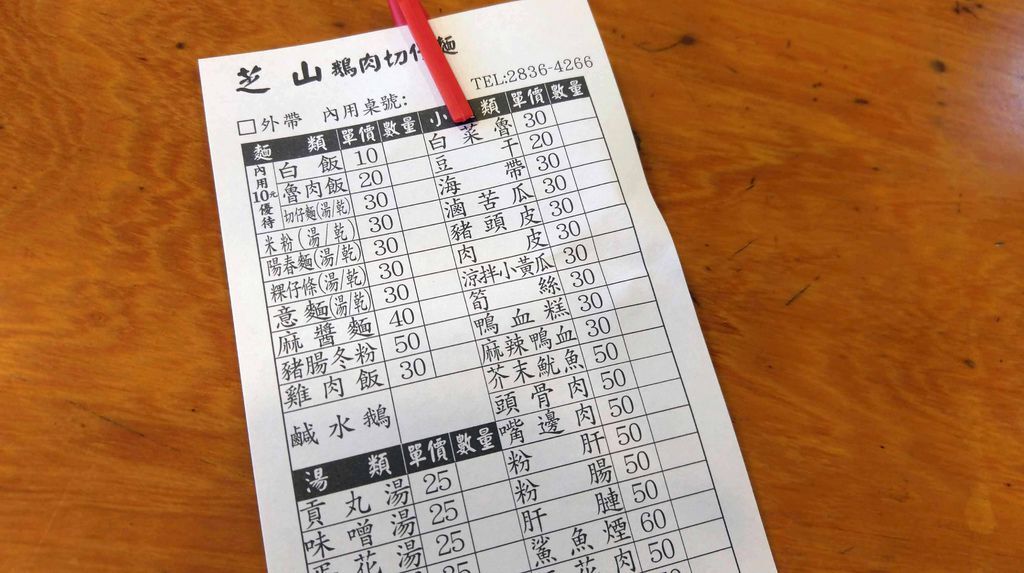 芝山鵝肉切仔麵
TEL:2836-4266
□外帶 內用桌號:
麵類 單價 數量
內用10元優待
白飯 10
魯肉飯 20
切仔麵(湯/乾) 30
米粉(湯/乾) 30
陽春麵(湯/乾) 30
粿仔條(湯/乾) 30
意麵(湯/乾) 30
麻醬麵 40
豬腸冬粉 50
雞肉飯 30
鹹水鵝
湯類 單價 數量
貢丸湯 25
味噌湯 25
蛋花湯 25
小類 單價 數量
白菜魯 30
豆干 20
海帶 30
滷苦瓜 30
豬頭皮 30
肉皮 30
涼拌小黃瓜 30
筍絲 30
鴨血糕 30
麻辣鴨血 30
芥末魷魚 50
頭骨肉 50
嘴邊肉 50
粉肝 50
粉腸 50
肝腱 50
鯊魚煙 60
花肉 50